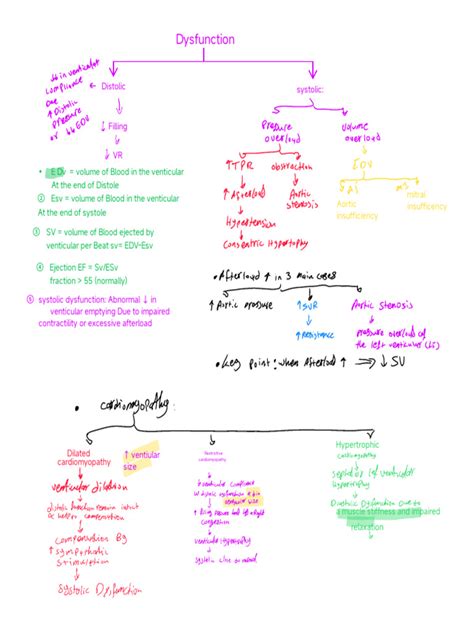 Dysfunction
↓ in ventricular
compliance
Due
↑ Distolic
pressure
or
Distolic
↓ Filling
↓ VR
systolic:
pressure
overload
volume
overload
↑ TPR
obstraction
EDV
↑ Afterload
Aortic
stenosis
Hypertension
Aortic
insufficiency
mitral
insufficency
• E Dv = volume of Blood in the ventricular
At the end of Distole
② Esv = volume of Blood in the ventricular
At the end of systole
③ SV = volume of Blood ejected by
ventricular per Beat sv= EDV-Esv
④ Ejection EF = Sv/ESv
fraction > 55 (normally)
⑤ systolic dysfunction: Abnormal ↓ in
ventricular emptying Due to impaired
contractility or excessive afterload
• Afterload ↑ in 3 main cases
↑ Aortic pressure
↑ SVR
↑ Resistance
Aortic stenosis
pressure overload of
the left ventricular
• key point: when Afterload ↑ ⟹ ↓ SV
• cardiomyopathy:
Dilated
cardiomyopathy
↑ ventiular
size
ventricular dilation
compensation By
↑ sympathatic
stimulation
systolic Dysfunction
cardiomyopathy
↓ ventricular compliance
congestion
Hypertrophic
cardiomyopathy
left ventricular
hypertrophy
Diastolic Dysfunction Due to
a muscle stiffness and impaired
relaxation